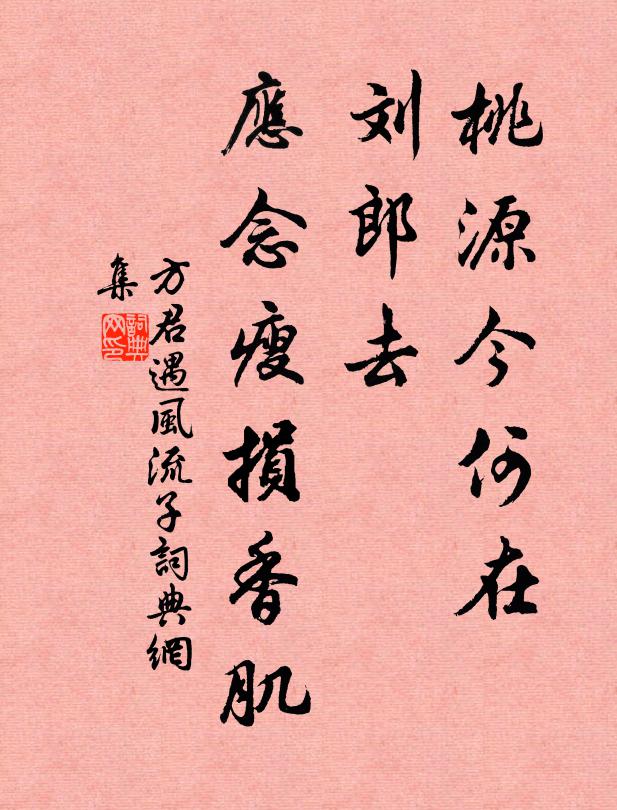 桃源今何在
刘郎去
應念瘦損香肌
方君遇風流子詞典網
集
詞典網印